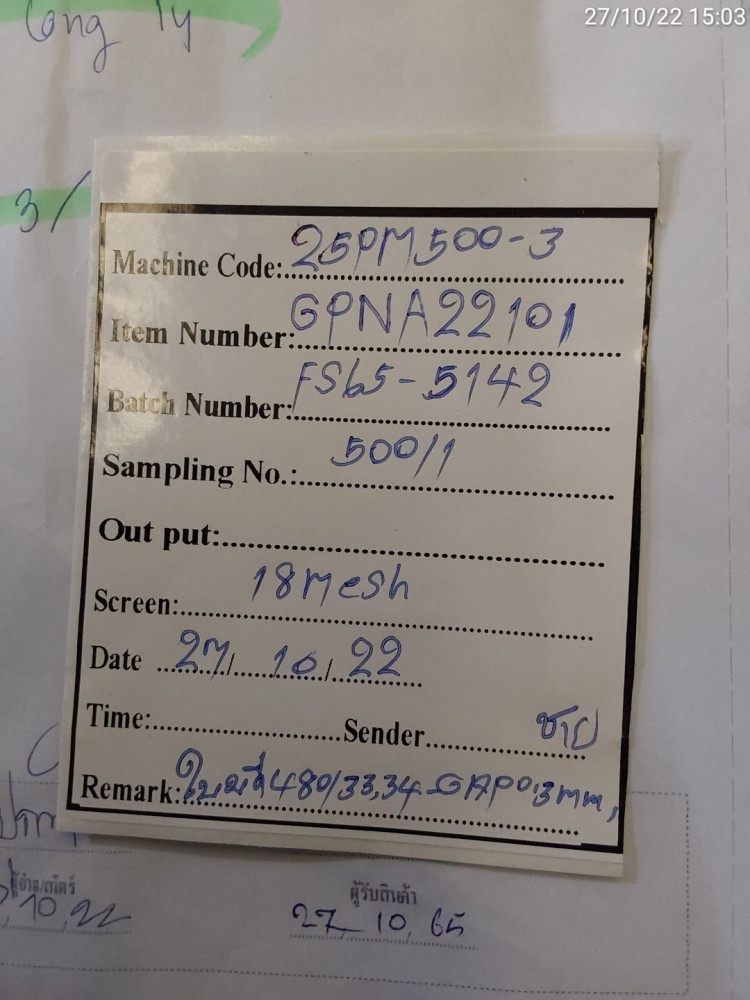 27/10/22 15:03
Cong Ty
3/
Machine Code: 25PM500-3
Item Number: GPNA22101
Batch Number: FS65-5142
Sampling No.: 500/1
Out put:
Screen: 18 Mesh
Date 27/10/22
Time: Sender ชาย
Remark: ใบมีด 480/33,34 GAP 0.3 mm,
ผู้จ่าย/สโตร์
ผู้รับสินค้า
10, 22
27 10, 65